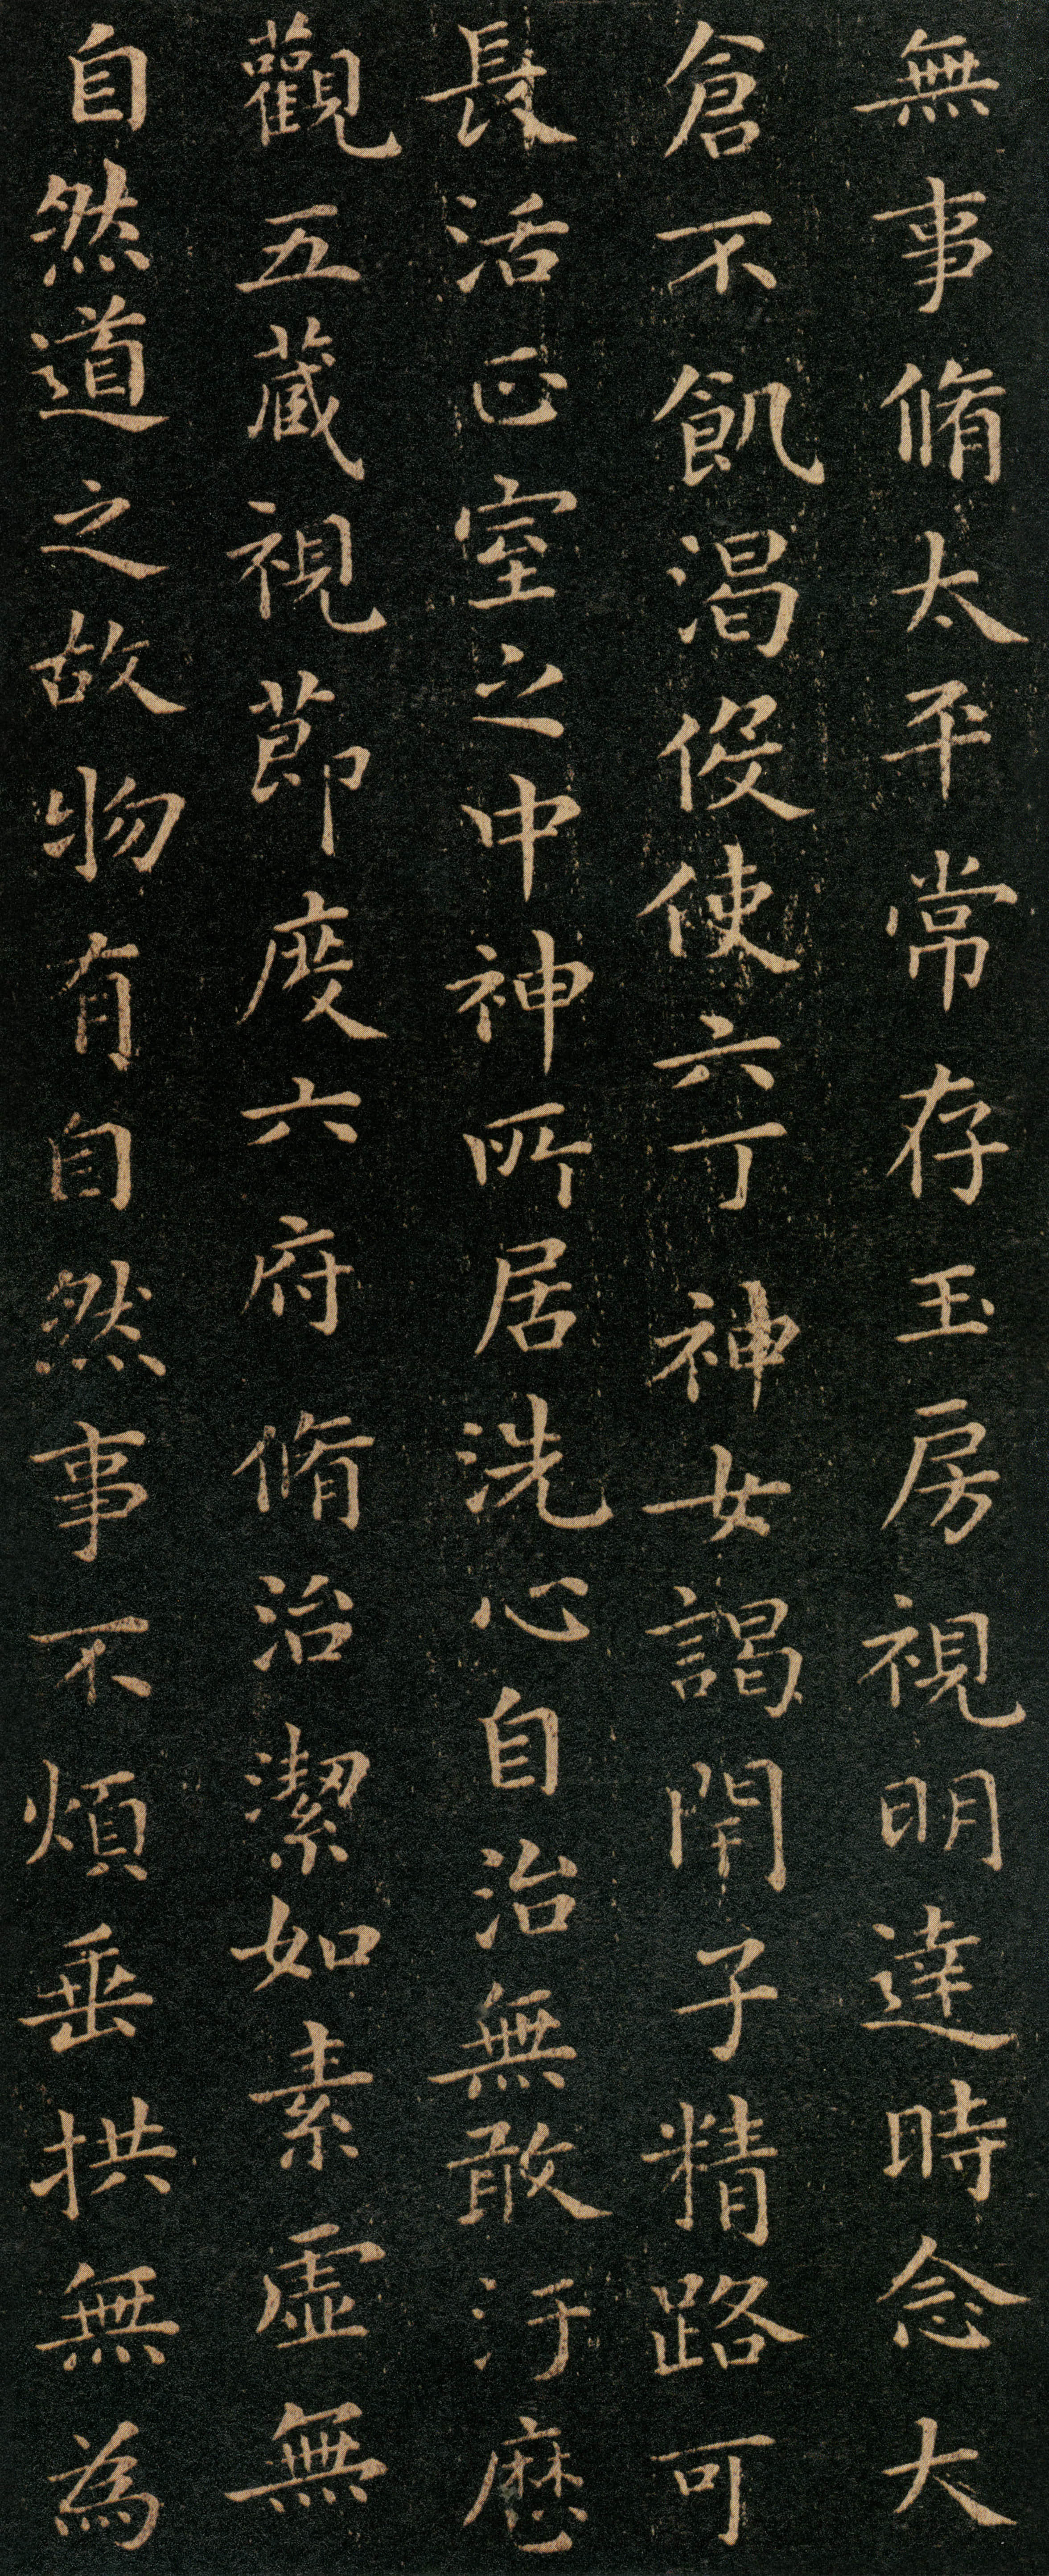 無事脩太平常存玉房視明達時念大
倉不飢渴役使六丁神女謁閇子精路可
長活正室之中神所居洗心自治無敢汙歷
觀五藏視節度六府脩治潔如素虛無
自然道之故物有自然事不煩垂拱無為